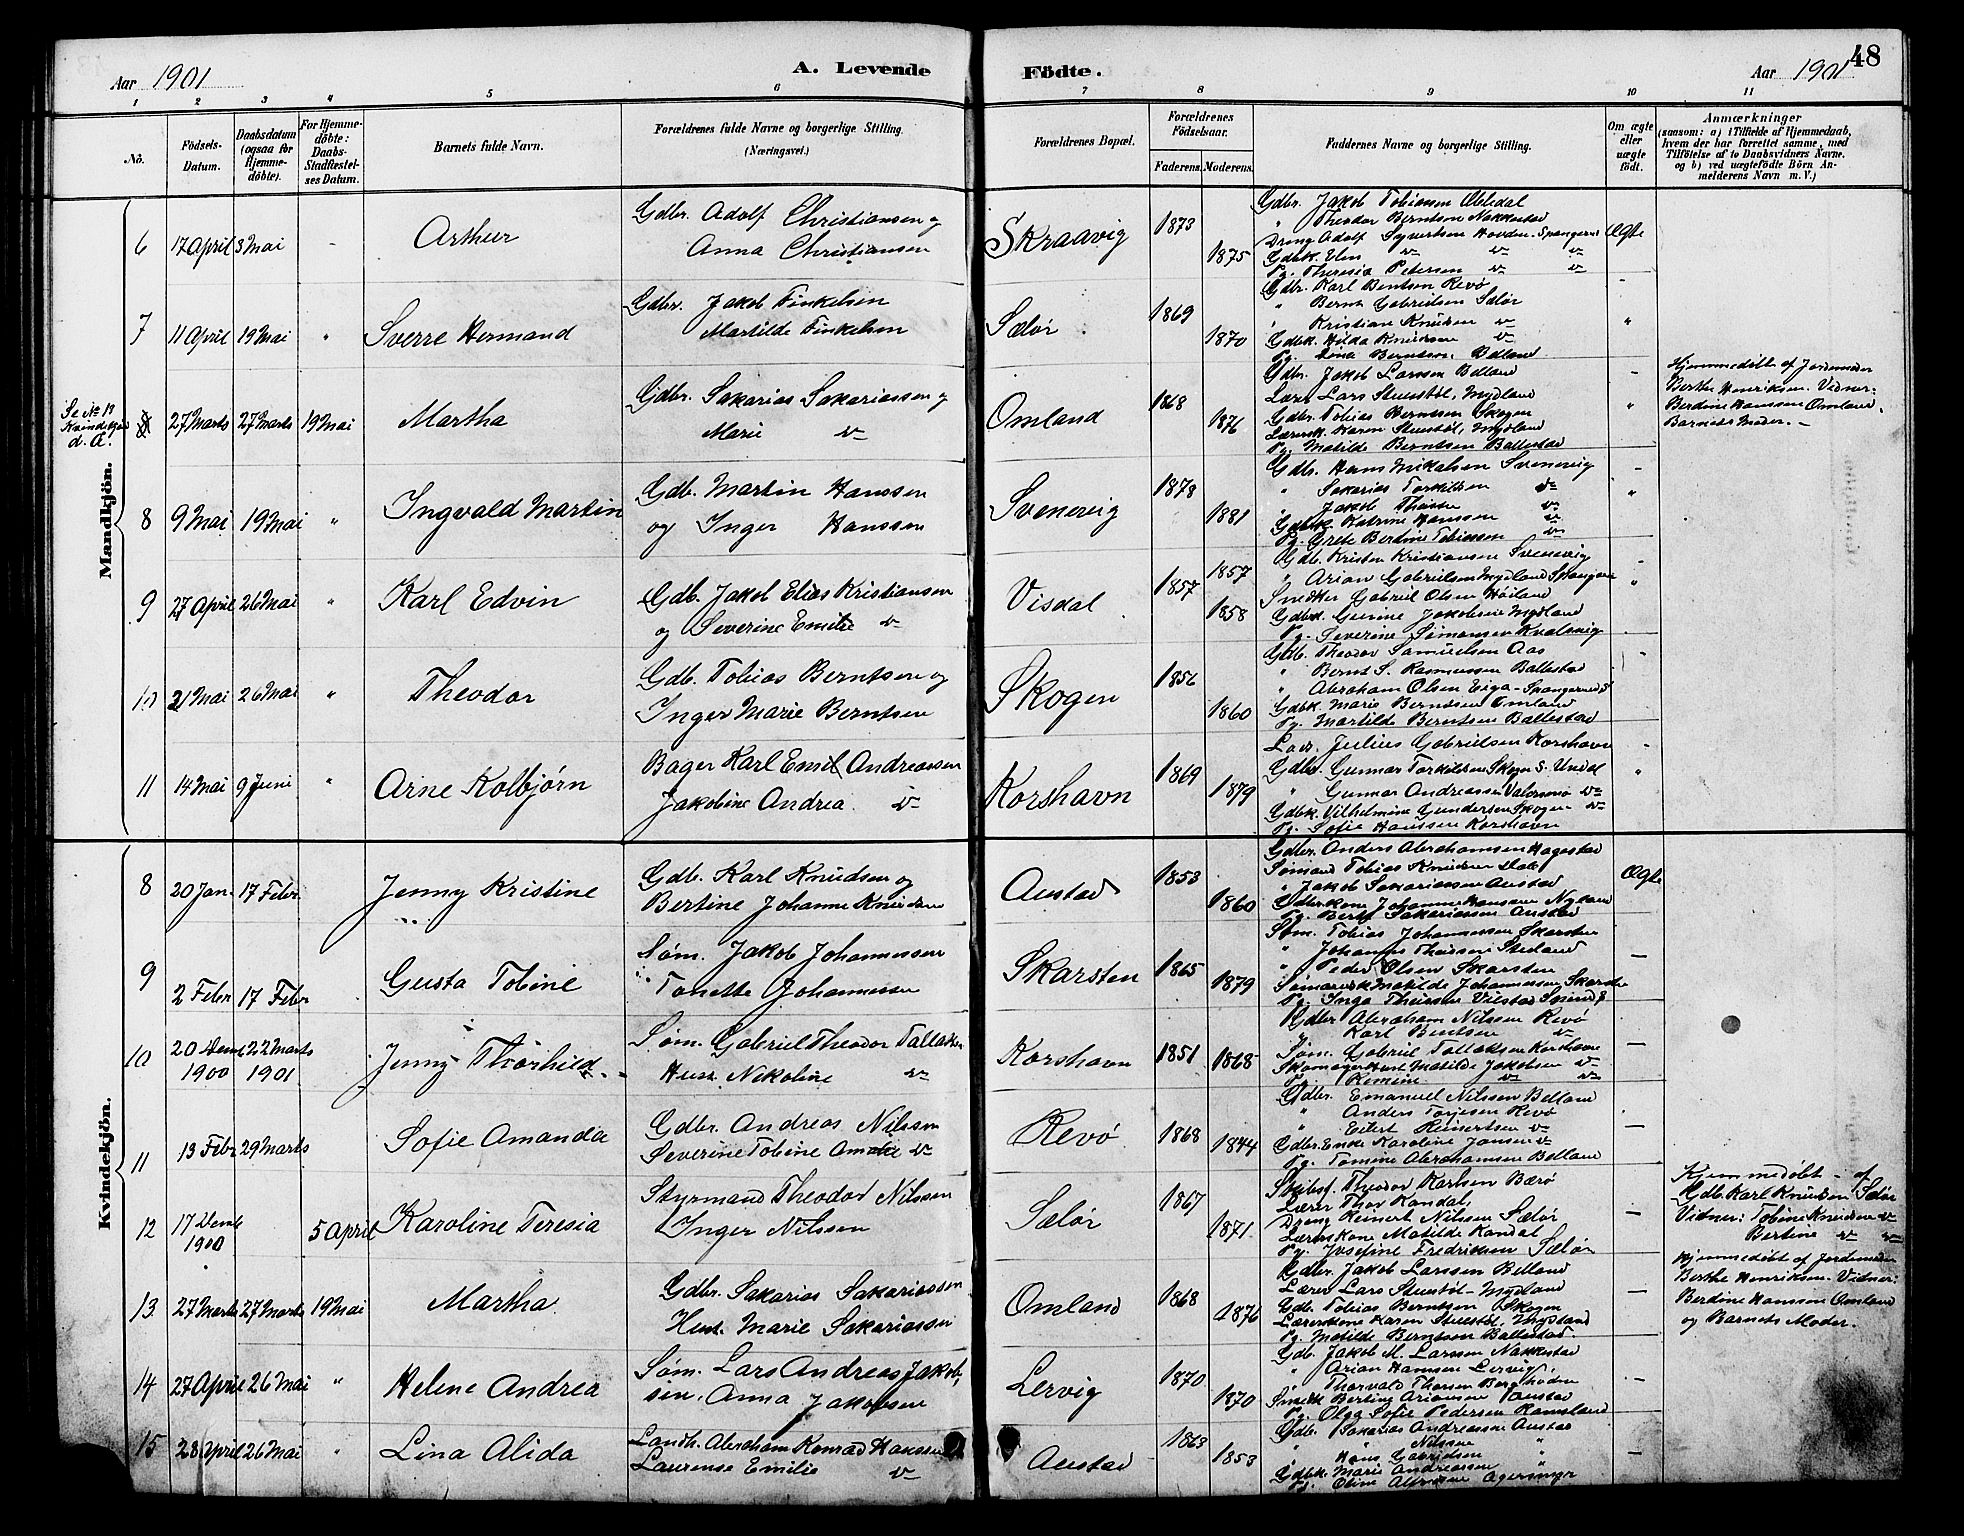 Aar 1901
A. Levende
Födte.
Aar 1901
48
1 2 3 4 5 6 7 8 9 10 11
No.
Födsels-
Datum.
Daabsdatum
(ogsaa for
Hjemme-
döbte).
For Hjemme-
döbte:
Daabs-
Stadfæstel-
ses Datum.
Barnets fulde Navn.
Forældrenes fulde Navne og borgerlige Stilling.
(Næringsvei.)
Forældrenes Bopæl.
Forældrenes
Födselsaar.
Faderens. Moderens.
Faddernes Navne og borgerlige Stilling.
Om ægte
eller
uægte
födt.
Anmærkninger
(saasom: a) i Tilfælde af Hjemmedaab,
hvem der har forrettet samme, med
Tilföielse af to Daabsvidners Navne.
og b) ved uægtefödte Börn An-
melderens Navn m. V.)
Mandkjön.
6 17 April 3 Mai - Arthur
Gdbr. Adolf Christiansen og
Anna Christiansen
Skraavig 1873 1875
Gdbr. Jakob Tobiassen
" Theodor Berntsen Nakkestad
Dreng Adolf Syvertsen Hovden Spangereid
Gdbk. Elen
Pg. Theresia Petersen
Ægte
7 11 April 19 Mai " Sverre Hermand
Gdbr. Jakob Tinkelsen
Martilde Tinkelsen
Sælør 1869 1870
Gdbr. Karl Bentsen Revø
" Bernt Gabrielsen Sælør
" Kristian Knudsen
Gdbk. Hilda Knudsen
Pg. Lina Berntsen Belland
"
Se No 13
Kvindekjøn
d. A.
27 Marts 27 Marts 19 Mai Martha
Gdbr. Sakarias Sakariassen og
Marie
Omland 1868 1876
Gdbr. Jakob Larssen Belland
Lærer Lars Stuestøl, Mydland
Gdbr. Tobias Berntsen Skogen
Lærersk. Karen Stuestøl, Mydland
Pg. Matilde Berntsen Ballestad
"
Hjemmedøbt af Jordemoder
Berthe Henriksen. Vidner:
Berdine Hanssen Omland.
Barnets Moder. -
8 9 Mai 19 Mai " Ingvald Martin
Gdb. Martin Hanssen
og Inger Hanssen
Svenevig 1878 1881
Gdbr. Hans Mikalsen Svenevig
" Sakarias Torkildsen
" Jakob
Gdbk. Katrine Hanssen
Pg. Grete Berdine Tobiassen
"
9 27 April 26 Mai " Karl Edvin
Gdb. Jakob Elias Kristiansen
og Severine Emilie
Visdal 1857 1857 1858
Gdb. Kristen Kristiansen Svenevig
" Arian Gabrielsen Mydland Spangereid
Snedker Gabriel Olsen Høiland
Gdbk. Gurine Jakobsen Mydland
Pg. Severine Simonsen Kvalsvig
"
10 21 Mai 26 Mai " Theodor
Gdb. Tobias Berntsen og
Inger Marie Berntsen
Skogen 1856 1860
Gdb. Theodor Samuelsen Aas
" Bernt S. Rasmussen Ballestad
" Abraham Olsen Eiga - Spangereid S
Gdbk. Marie Berntsen Omland
Pg. Martilde Berntsen Ballestad
11 14 Mai 9 Juni " Arne Kolbjørn
Bager Karl Emil Andreassen
Jakobine Andrea
Korshavn 1869 1879
Julius Gabrielsen Korshavn
Gdbr. Gunnar Torkildsen Skogen S. Undal
" Gunnar Andreassen
Gdbk. Vilhelmine Gundersen Skogen
Pg. Sofie Hanssen Korshavn
"
Kvindekjön.
8 20 Jan. 17 Febr. Jenny Kristine
Gdb. Karl Knudsen og
Bertine Johanne Knudsen
Austad 1853 1860
Gdbr. Anders Abrahamsen Hagestad
Sømand Tobias Knudsen
" Jakob Sakariassen Austad
Gdbrkone Johanne Hansen
Pg. Berte Sakariassen Austad
Ægte
9 2 Febr 17 Febr Gusta Tobine
Søm. Jakob Johannessen
Tonette Johannessen
Skarsten 1865 1879
Søm. Tobias Johannessen Skarsten
" Johannes
" Peder Olsen Skarsten
Matilde Johannessen Skarsten
Pg. Inga
-
10 20 Decmb 1900 22 Marts 1901 Jenny Thorhild
Søm. Gabriel Theodor Tallaksen
Hust. Nikoline
Korshavn 1851 1868
Gdbr. Abraham Nilssen Revø
Karl Bentsen
Søm. Gabriel Tallaksen Korshavn
Skomagerhust. Matilde Jakobsen
Pg.
-
11 13 Febr 29 Marts Sofie Amanda
Gdbr. Andreas Nilssen
Severine Tobine
Revø 1868 1844
Gdbr. Emanuel Nilssen Belland
" Anders Torjesen Revø
" Eilert Reinertsen
Gdbr. Enke Karoline Jansen
Pg. Tomine Abrahamsen Belland
12 17 Decmb 1900 5 April Karoline Teresia
Styrmand Theodor Nilssen
Inger Nilssen
Sælør 1867 1871
Theodor Karlsen Bærø
Lærer Thor Kandal
Dreng Reinert Nilssen Sælør
Lærerkone Matilde Kandal
Pg. Josefine Fredriksen Sælør
-
Hjemmedøbt - af
Gdb. Karl Knudsen Sælør
Vidner: Tobine Knudsen
Bertine
13 27 Marts 27 Marts 19 Mai Martha
Gdbr. Sakarias Sakariassen
Hust. Marie Sakariassen
Omland 1868 1876
Gdbr. Jakob Larssen Belland
Lærer Lars Stuestøl - Mydland
Gdb. Tobias Berntsen Skogen
Lærerkone Karen Stuestøl, Mydland
Pg. Matilde Berntsen Ballestad
-
Hjemmedøbt af Jordemoder
Berthe Henriksen. Vidner:
Berdine Hanssen Omland
og Barnets Moder.
14 27 April 26 Mai " Helene Andrea
Søm. Lars Andreas Jakob-
sen, Anna Jakobsen
Lervig 1870 1870
Gdb. Jakob M. Larssen Nakkestad
" Arian Hanssen Lervig
" Thorvald
Bertine Ariansen Austad
Pg. Olga Sofie Pedersen Ramsland
-
15 28 April 26 Mai " Lina Alida
Landh. Abraham Konrad Hanssen
Laurense Emilie
Austad 1863 1853
Gdb. Sakarias Andreassen Austad
" Nilssen "
" Hans Gabrielsen "
Gdbk. Marie Andreassen "
Pg. Oline
-